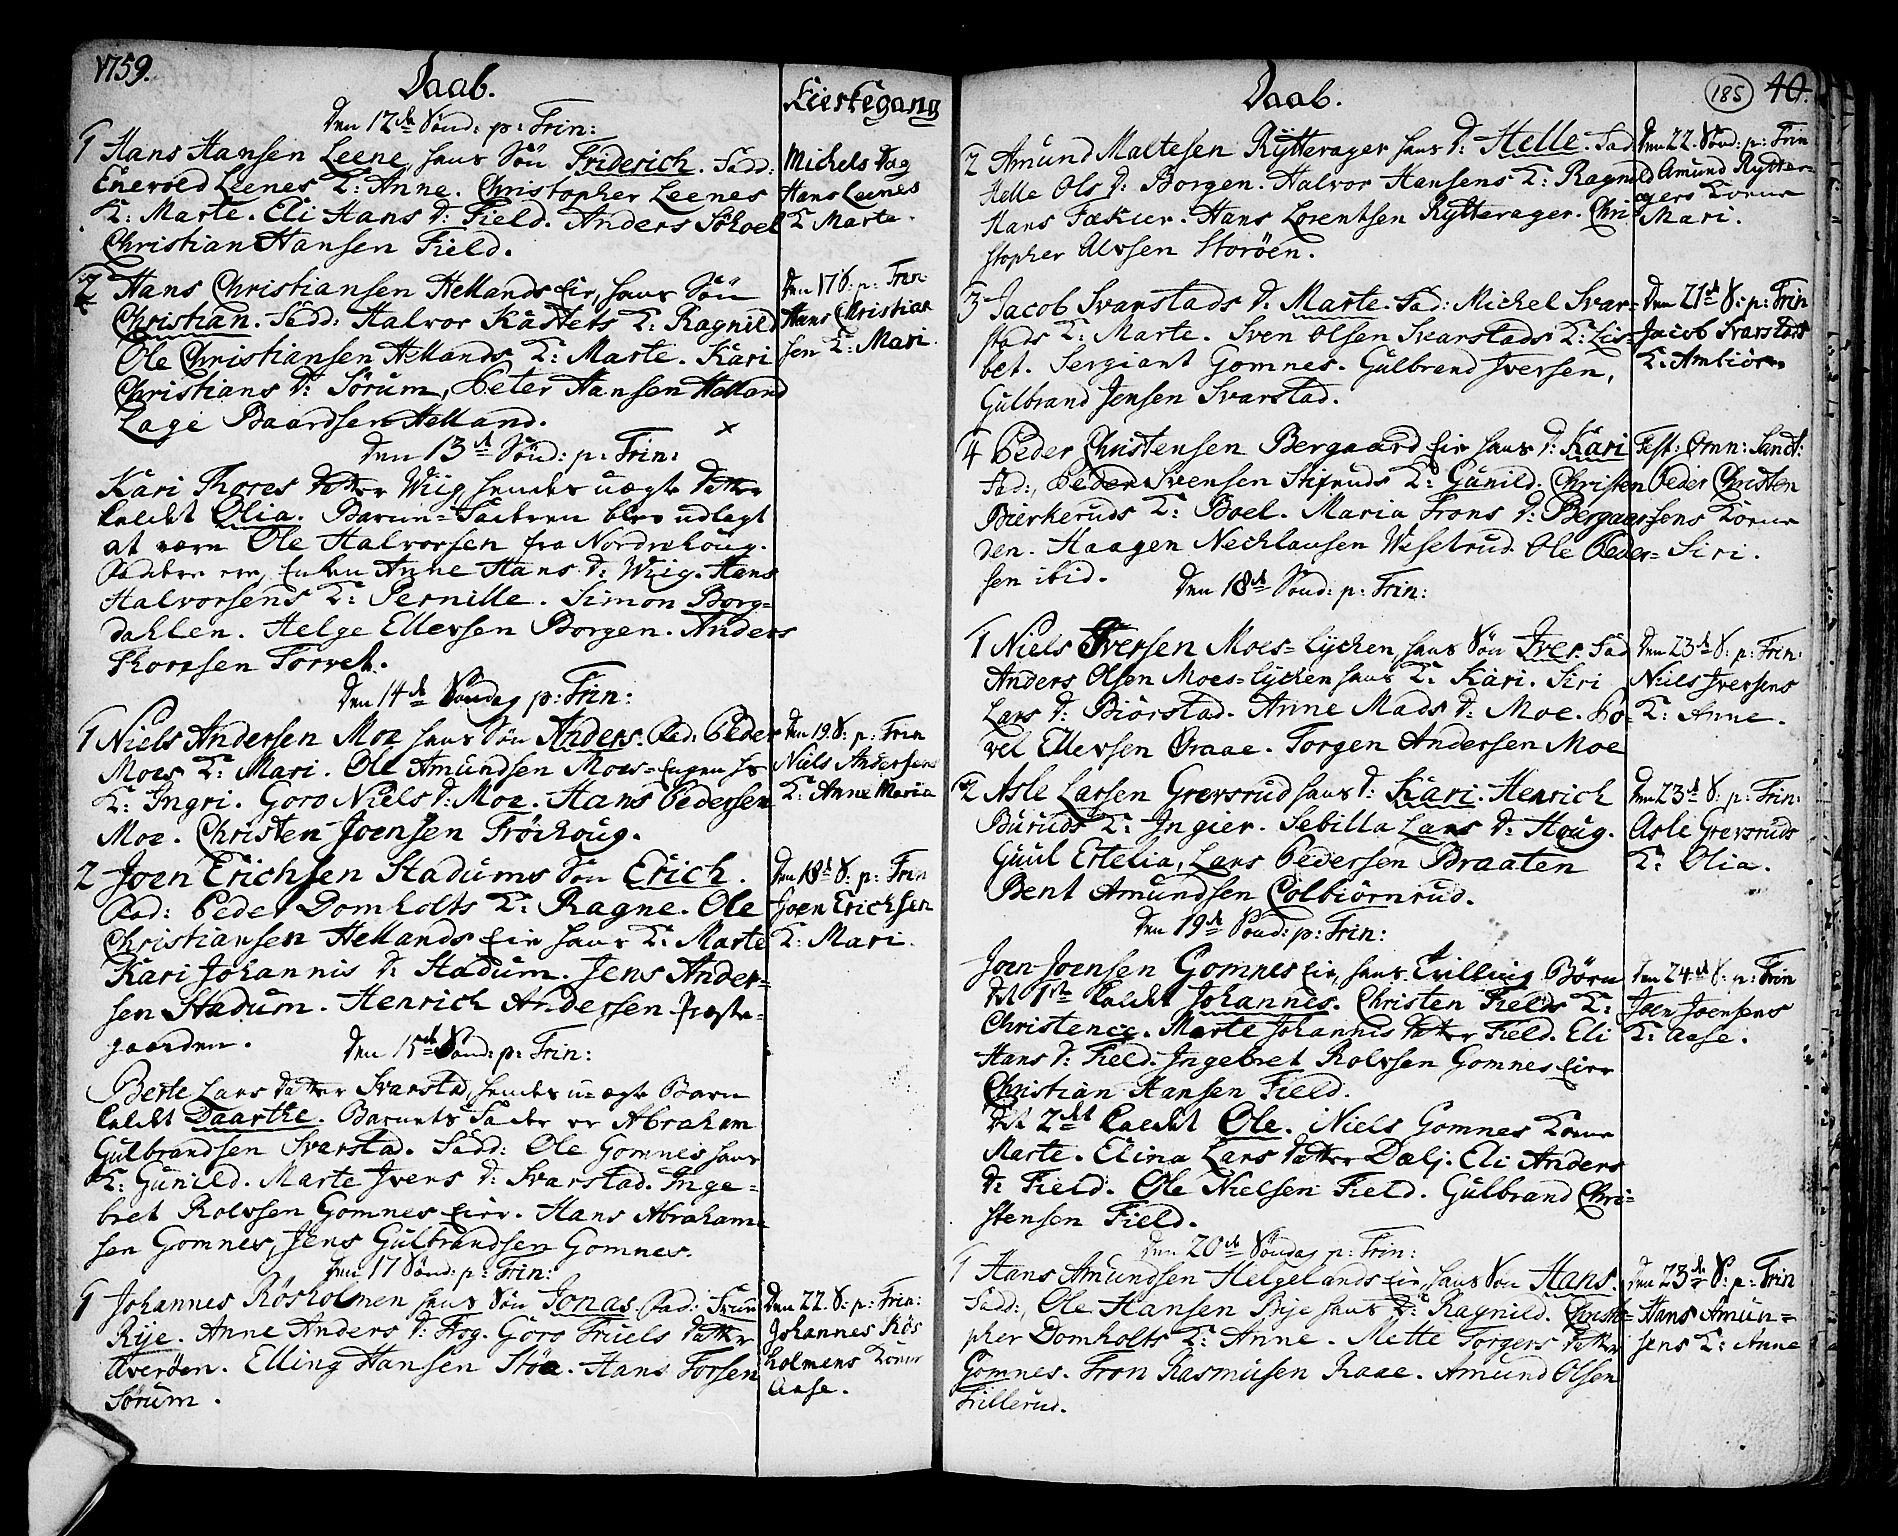 1759.
Daab.
Kierkegang
Den 12te Sønd: p: Trin:
1 Hans Hansen Leene, hans Søn Friderich. Fadd:
Enevold Leenes K: Anne. Christopher Leenes
K: Marte. Eli Hans D: Field. Anders
Christian Hansen Field.
Michels Dag
Hans Leenes
K Marte.
2 Hans Christiansen Hellands Eie, hans Søn
Christian. Fadd: Halvor Kastets K: Ragnild
Ole Christiansen Hellands K: Marte. Kari
Christians D: Sørum, Peter Hansen Helland
Lage Baardsen Helland.
Den 17 S: p: Trin
Hans Christian
sen K: Mari.
Den 13de Sønd: p: Trin:
Kari Thores Datter Wiig hendes uægte Datter
kaldt Olia. Barne-Faderen blev udlagt
at være Ole Halvorsen fra Nordrehoug.
Faddere ere, Enken Anne Hans D: Wiig. Hans
Halvorsens K: Pernille. Simon Borg-
dahlen. Helge Ellevsen Borgen. Anders
Thoresen Torvet.
Den 14de Søndag p: Trin:
1 Niels Andersen Moe hans Søn Anders. Fad: Peder
Moes K: Mari. Ole Amundsen Moes-Engen hs
K: Ingri. Goro Niels D: Moe. Hans Pedersen
Moe. Christen Joensen Frøshoug.
Den 19 S: p: Trin
Niels Andersens
K: Anne Maria
2 Joen Erichsen Stadums Søn Erich.
Fad: Peder Domholts K: Ragne. Ole
Christiansen Hellands Eie hans K: Marte
Kari Johannis D: Stadum. Jens Ander-
sen Stadum. Henrich Andersen Præste-
gaarden.
Den 18de S: p: Trin
Joen Erichsen
K: Mari.
Den 15de Sønd: p: Trin:
Berte Lars Datter Svarstad, hendes u-ægte Barn
kaldt Daarthe. Barnets Fader er Abraham
Gulbrandsen Svarstad. Fadd: Ole Gomnes hans
K: Gunild. Marte Ivers D: Svarstad. Inge-
bret Rolvsen Gomnes Eie. Hans Abraham-
sen Gomnes, Jens Gulbrandsen Gomnes.
Den 17 Sønd: p: Trin:
1 Johannes Røsholmen hans Søn Jonas. Fad:
Rije. Anne Anders D: Goro Truels Datter
Elling Hansen Støa. Hans Torsen
Sørum.
Den 22. S: p: Trin:
Johannes Røs
holmens Kone
Aase.
Daab.
185
40.
2 Amund Maltesen Rytterager hans D: Helle. Fad
Helle Ols D: Borgen. Halvor Hansens K: Ragnild
Hans Lorentsen Rytterager. Chri
stopher Alvsen Storøen.
Den 22. Sønd: p: Trin
Amund Rytter-
agers Kone
Mari.
3 Jacob Svarstads D: Marte. Fad: Michel Svar-
stads K: Marte. Sven Olsen Svarstads K: Lis-
bet. Sergiant Gomnes. Gulbrand Iversen,
Gulbrand Jensen Svarstad.
Den 21de S: p: Trin
Jacob Svarstads
K: Ambiør.
4 Peder Christensen Bergaard Eie hans D: Kari
Fad:, Peder Svensen Stifruds K: Gunild. Christen
Bierkeruds K: Boel. Maria Frons D: Bergaar-
den. Haagen Nechlausen Wesetrud. Ole Peder-
sen ibid.
Fest: Omn: Sanct:
Peder Christen
sens Kone
Siri.
Den 18de Sønd: p: Trin:
1 Niels Iversen Moes-Eychen, hans Søn Iver. Fad
Anders Olsen Moes-Eychen hans K: Kari. Siri
Lars D: Biørstad. Anne Mads D: Moe. Po-
vel Ellevsen Graae. Torgen Andersen Moe
Den 23de S: p: Trin:
Niels Iversens
K: Anne.
2 Asle Larsen Grevsrud hans D: Kari. Henrich
Buruds K: Ingier. Sebilla Lars D: Houg.
Guul Ertelia, Lars Pedersen Braaten
Bent Amundsen Colbiørnrud.
Den 23de S: p: Trin:
Asle Grevsruds
K: Olia.
Den 19de Sønd: p: Trin:
Joen Joensen Gomnes Eie, hans Tvilling Børn
Det 1ste kaldt Johannes. Christen Fields K:
Christence. Marte Johannis Datter Field. Eli
Hans D: Field. Ingebret Rolvsen Gomnes Eie
Christian Hansen Field.
Det 2det kaldt Ole. Niels Gomnes Kone
Marte. Elina Lars Datter Dalj. Eli Anders
D: Field. Ole Nielsen Field. Gulbrand Chri-
stensen Field.
Den 24de S: p: Trin
Joen Joensens
K: Aase.
Den 20de Søndag p: Trin:
1 Hans Amundsen Helgelands Eie, hans Søn Hans.
Fadd:, Ole Hansen Rije hans D: Ragnild. Christo-
pher Domholts K: Anne. Mette Torgers Datter
Gomnes. Fron Rasmusen Raae. Amund Olsen
Trillerud.
Den 23de S: p: Trin
Hans Amun-
sens K: Anne